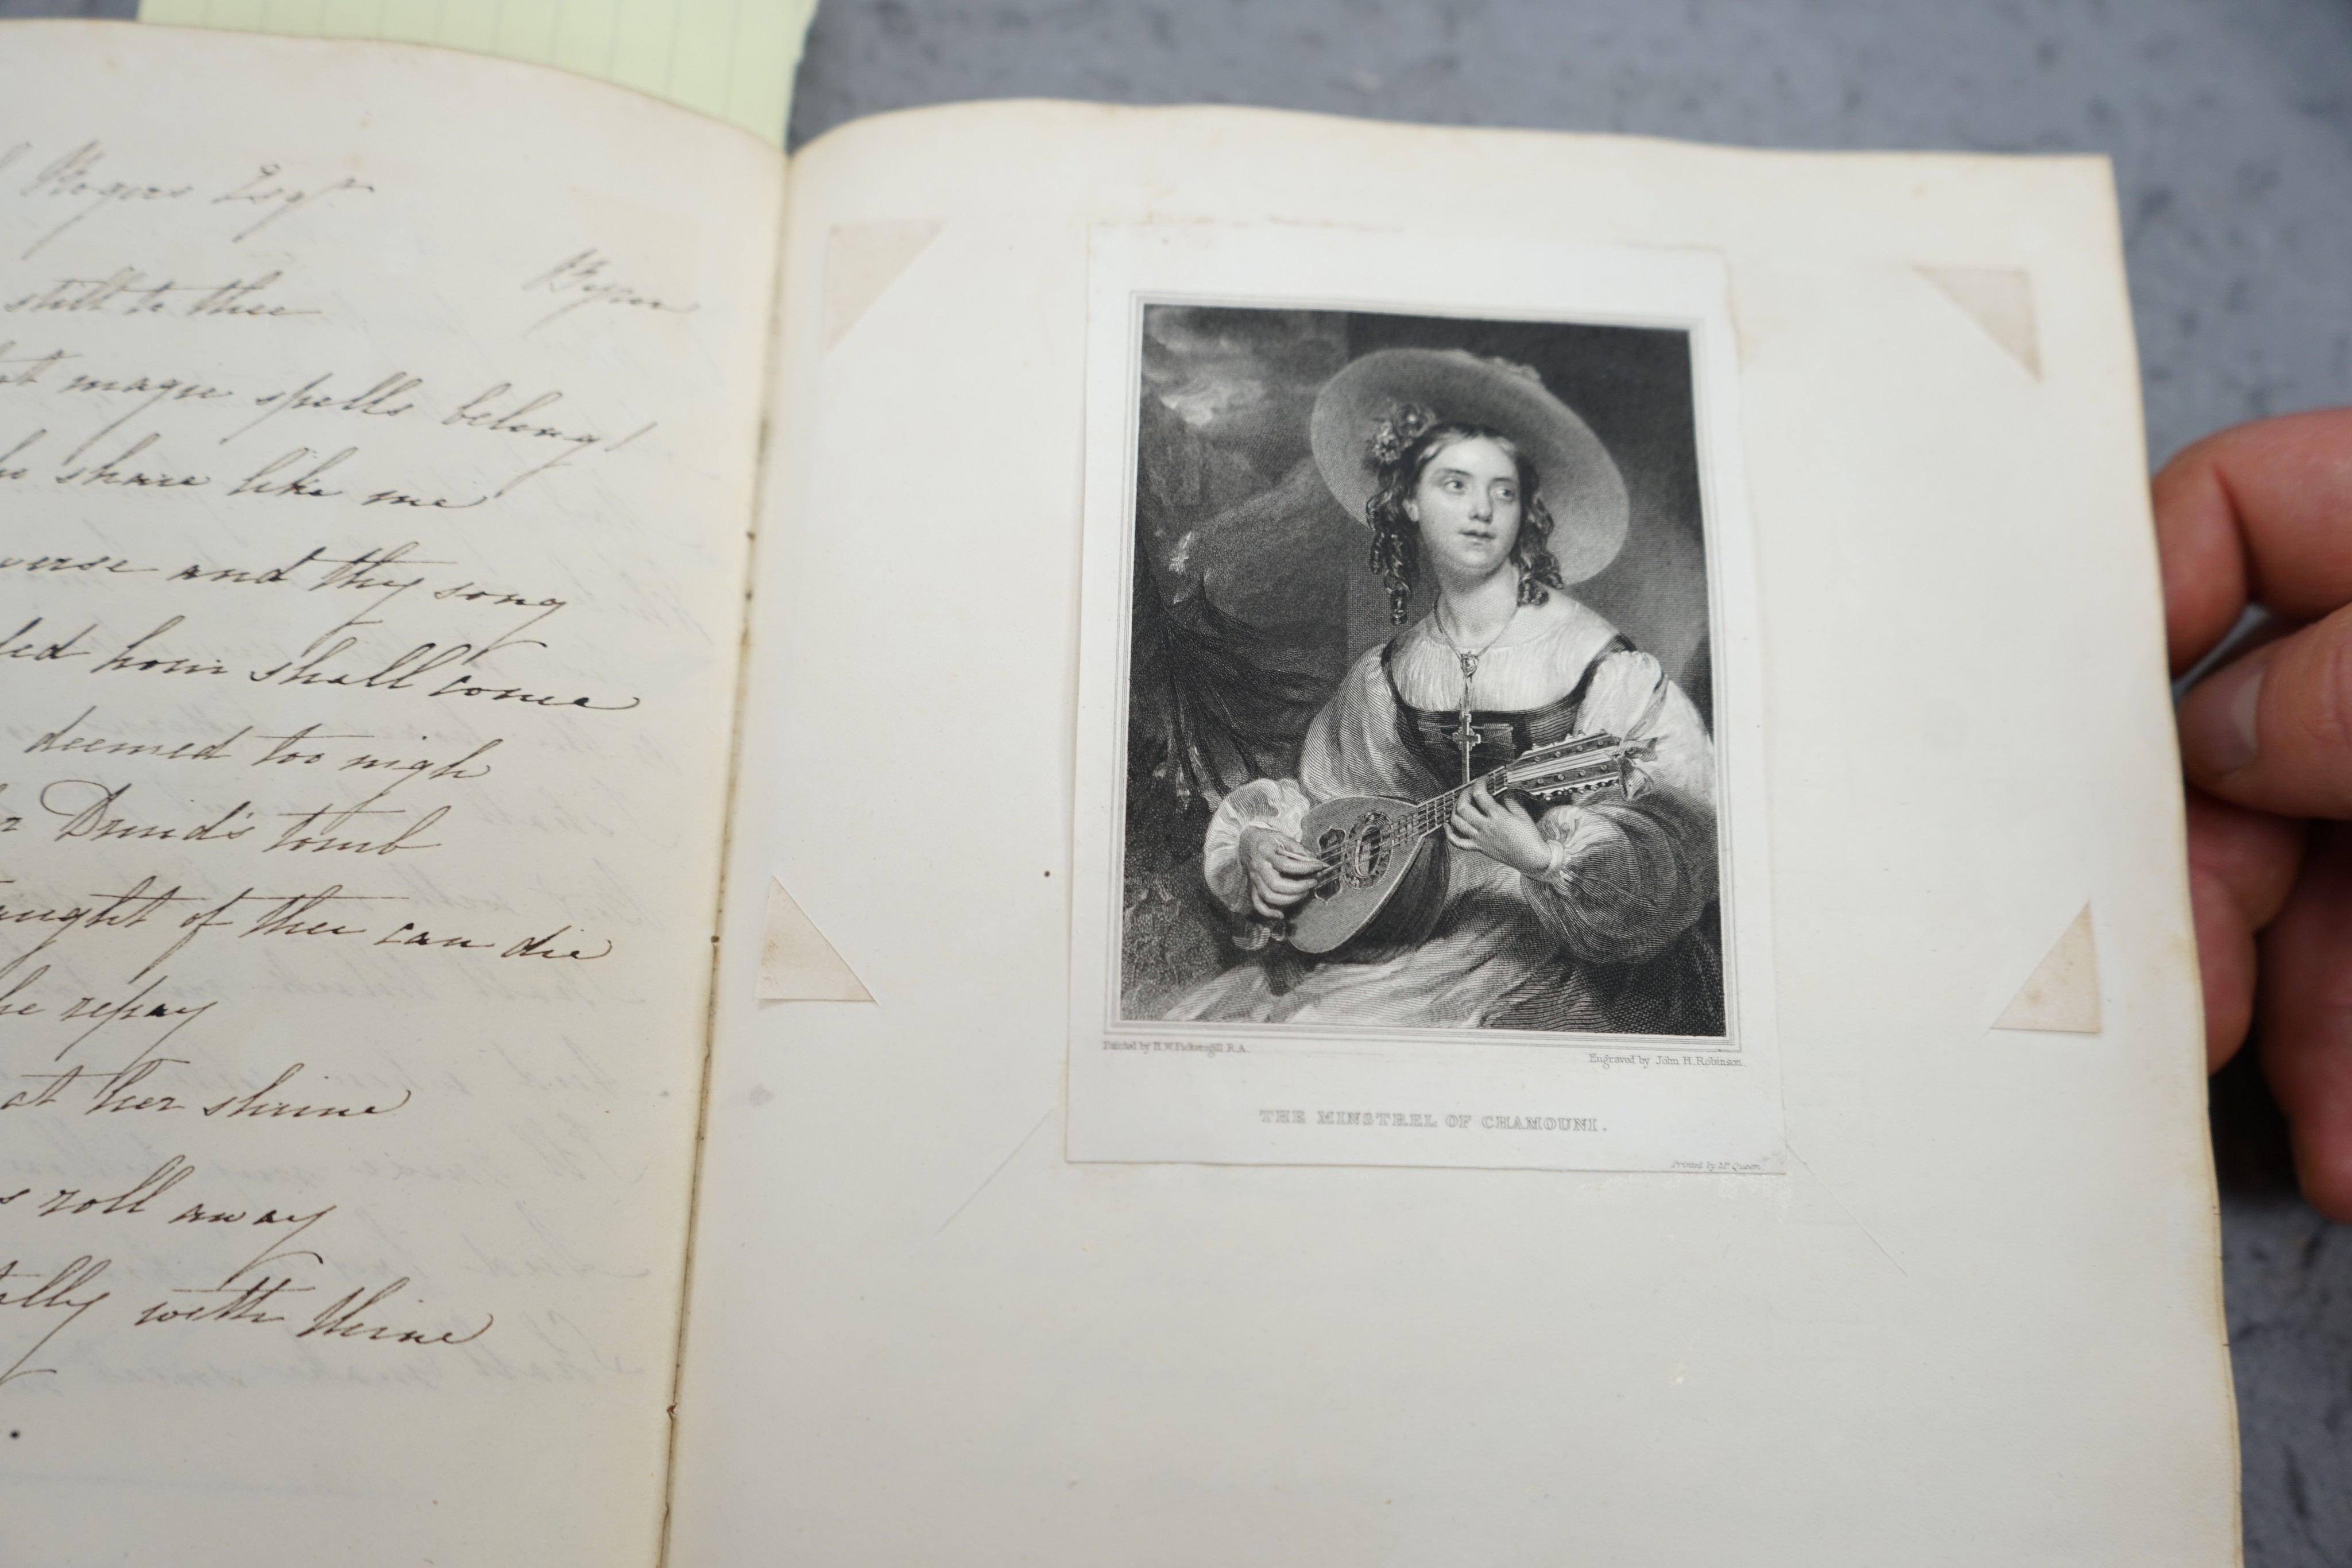 Rogers Esqr
Byron
still to thee
magic spells belong!
share like me
verse and thy song
hour shall come
deemed too nigh
Druid's tomb
aught of thee can die
he repay
at her shrine
roll away
with thine
Painted by H.W.Pickersgill R.A.
Engraved by John H. Robinson.
THE MINSTREL OF CHAMOUNI.
Printed by McQueen